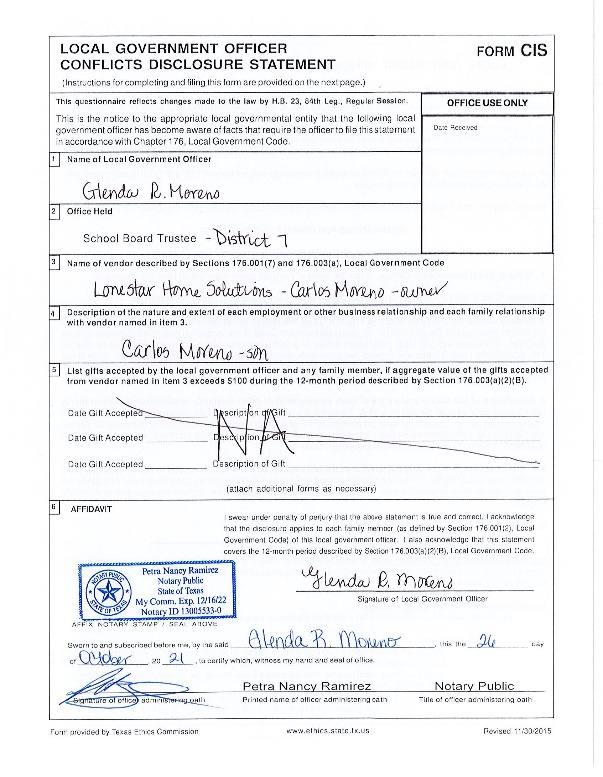 LOCAL GOVERNMENT OFFICER
CONFLICTS DISCLOSURE STATEMENT
FORM CIS
(Instructions for completing and filing this form are provided on the next page.)
This questionnaire reflects changes made to the law by H.B. 23, 84th Leg., Regular Session.
This is the notice to the appropriate local governmental entity that the following local
government officer has become aware of facts that require the officer to file this statement
in accordance with Chapter 176, Local Government Code.
OFFICE USE ONLY
Date Received
1 Name of Local Government Officer
Glenda R. Moreno
2 Office Held
School Board Trustee - District 7
3 Name of vendor described by Sections 176.001(7) and 176.003(a), Local Government Code
Lonestar Home Solutions - Carlos Moreno - owner
4 Description of the nature and extent of each employment or other business relationship and each family relationship
with vendor named in item 3.
Carlos Moreno - son
5 List gifts accepted by the local government officer and any family member, if aggregate value of the gifts accepted
from vendor named in item 3 exceeds $100 during the 12-month period described by Section 176.003(a)(2)(B).
Date Gift Accepted Description of Gift
NA
Date Gift Accepted Description of Gift
Date Gift Accepted Description of Gift
(attach additional forms as necessary)
6 AFFIDAVIT
I swear under penalty of perjury that the above statement is true and correct. I acknowledge
that the disclosure applies to each family member (as defined by Section 176.001(2), Local
Government Code) of this local government officer. I also acknowledge that this statement
covers the 12-month period described by Section 176.003(a)(2)(B), Local Government Code.
NOTARY PUBLIC
STATE OF TEXAS
Petra Nancy Ramirez
Notary Public
State of Texas
My Comm. Exp. 12/16/22
Notary ID 13005533-0
Glenda R. Moreno
Signature of Local Government Officer
AFFIX NOTARY STAMP / SEAL ABOVE
Sworn to and subscribed before me, by the said Glenda R. Moreno, this the 26 day
of October, 20 21, to certify which, witness my hand and seal of office.
Petra Nancy Ramirez Notary Public
Signature of officer administering oath Printed name of officer administering oath Title of officer administering oath
Form provided by Texas Ethics Commission www.ethics.state.tx.us Revised 11/30/2015